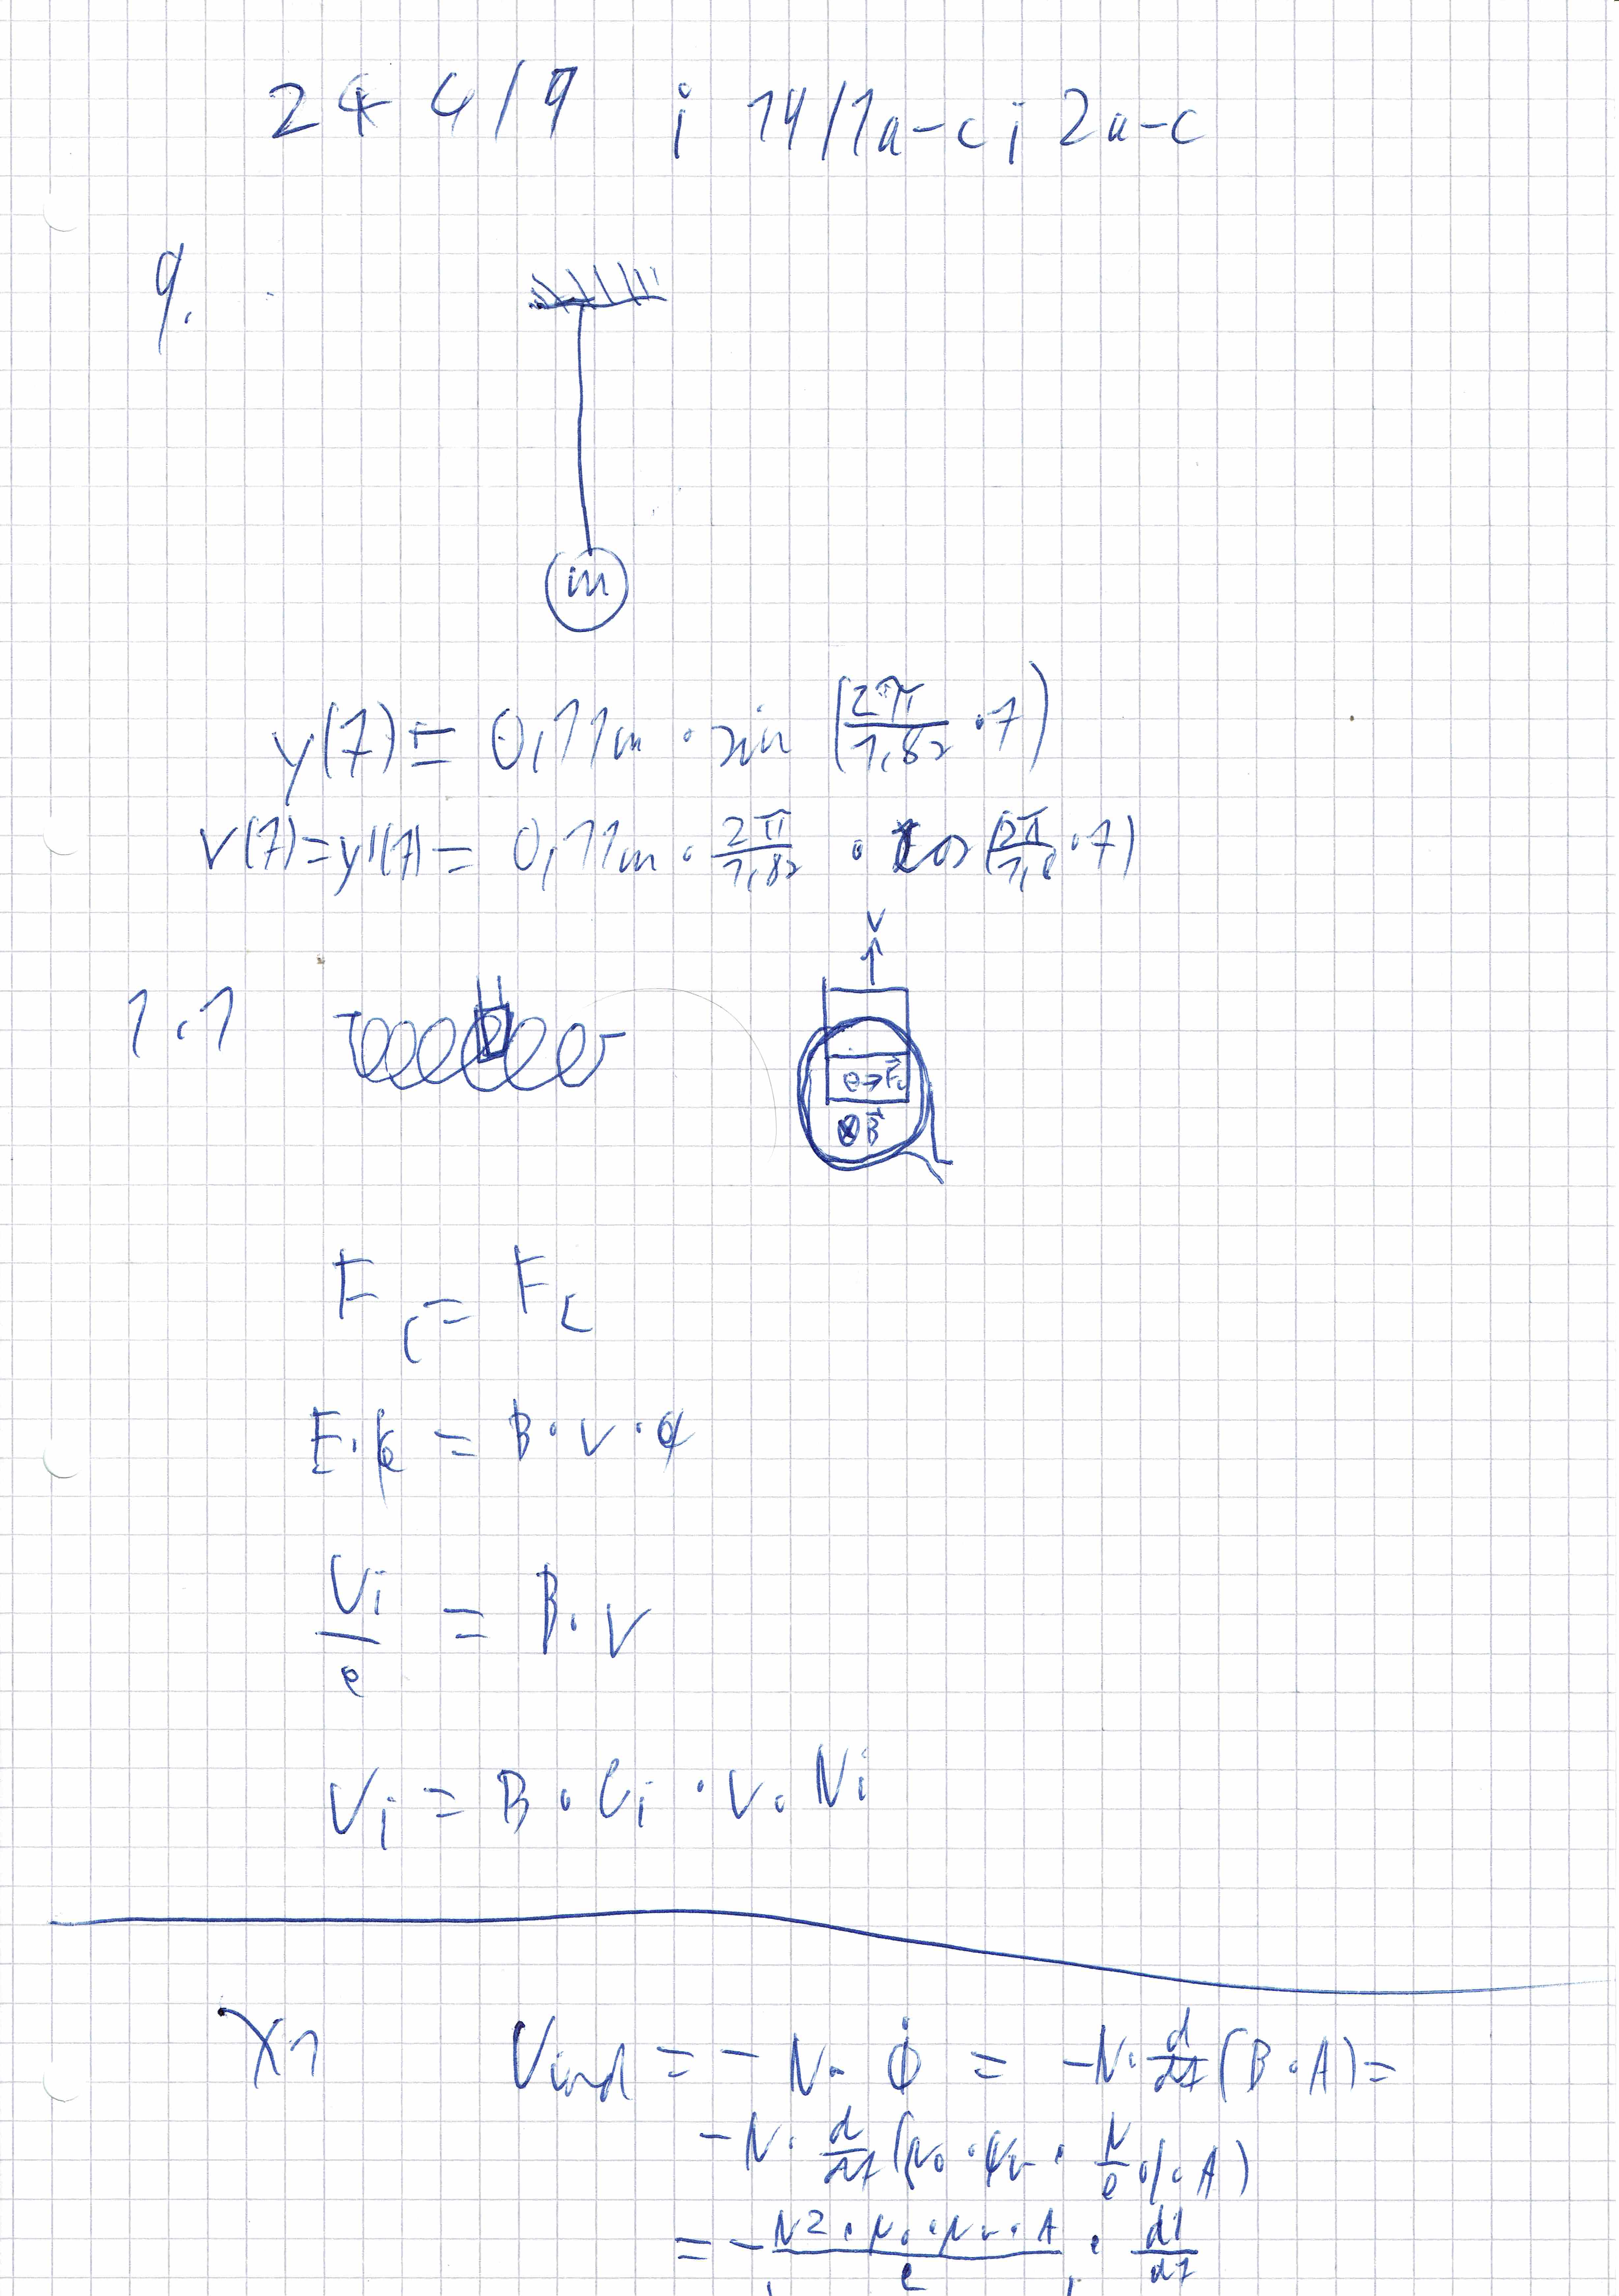 244/9 ; 14/1a-c ; 2a-c
9.
m
y(t) = 0,11m · sin (2π/1,8s · t)
v(t) = y'(t) = 0,11m · 2π/1,8s · cos (2π/1,8 · t)
v
1.1
e → F⃗L
⊗ B⃗
FC = FL
E · e = B · v · e
Ui/l = B · v
Ui = B · li · v · Ni
Uind = -N · Φ̇ = -N · d/dt (B · A) =
-N · d/dt (μ0 · μr · N/l · I · A)
= - N² · μ0 · μr · A / l · dI/dt